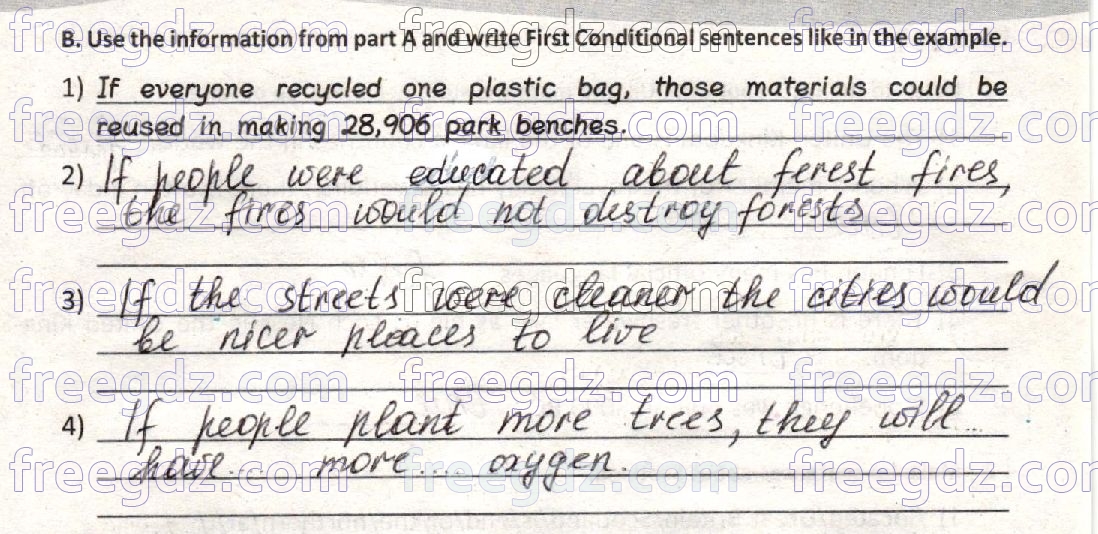 B. Use the information from part A and write First Conditional sentences like in the example.
1) If everyone recycled one plastic bag, those materials could be
reused in making 28,906 park benches.
2) If people were educated about ferest fires,
the fires would not destroy forests
3) If the streets were cleaner the cities would
be nicer pleaces to live
4) If people plant more trees, they will
have more oxygen.
freegdz.com